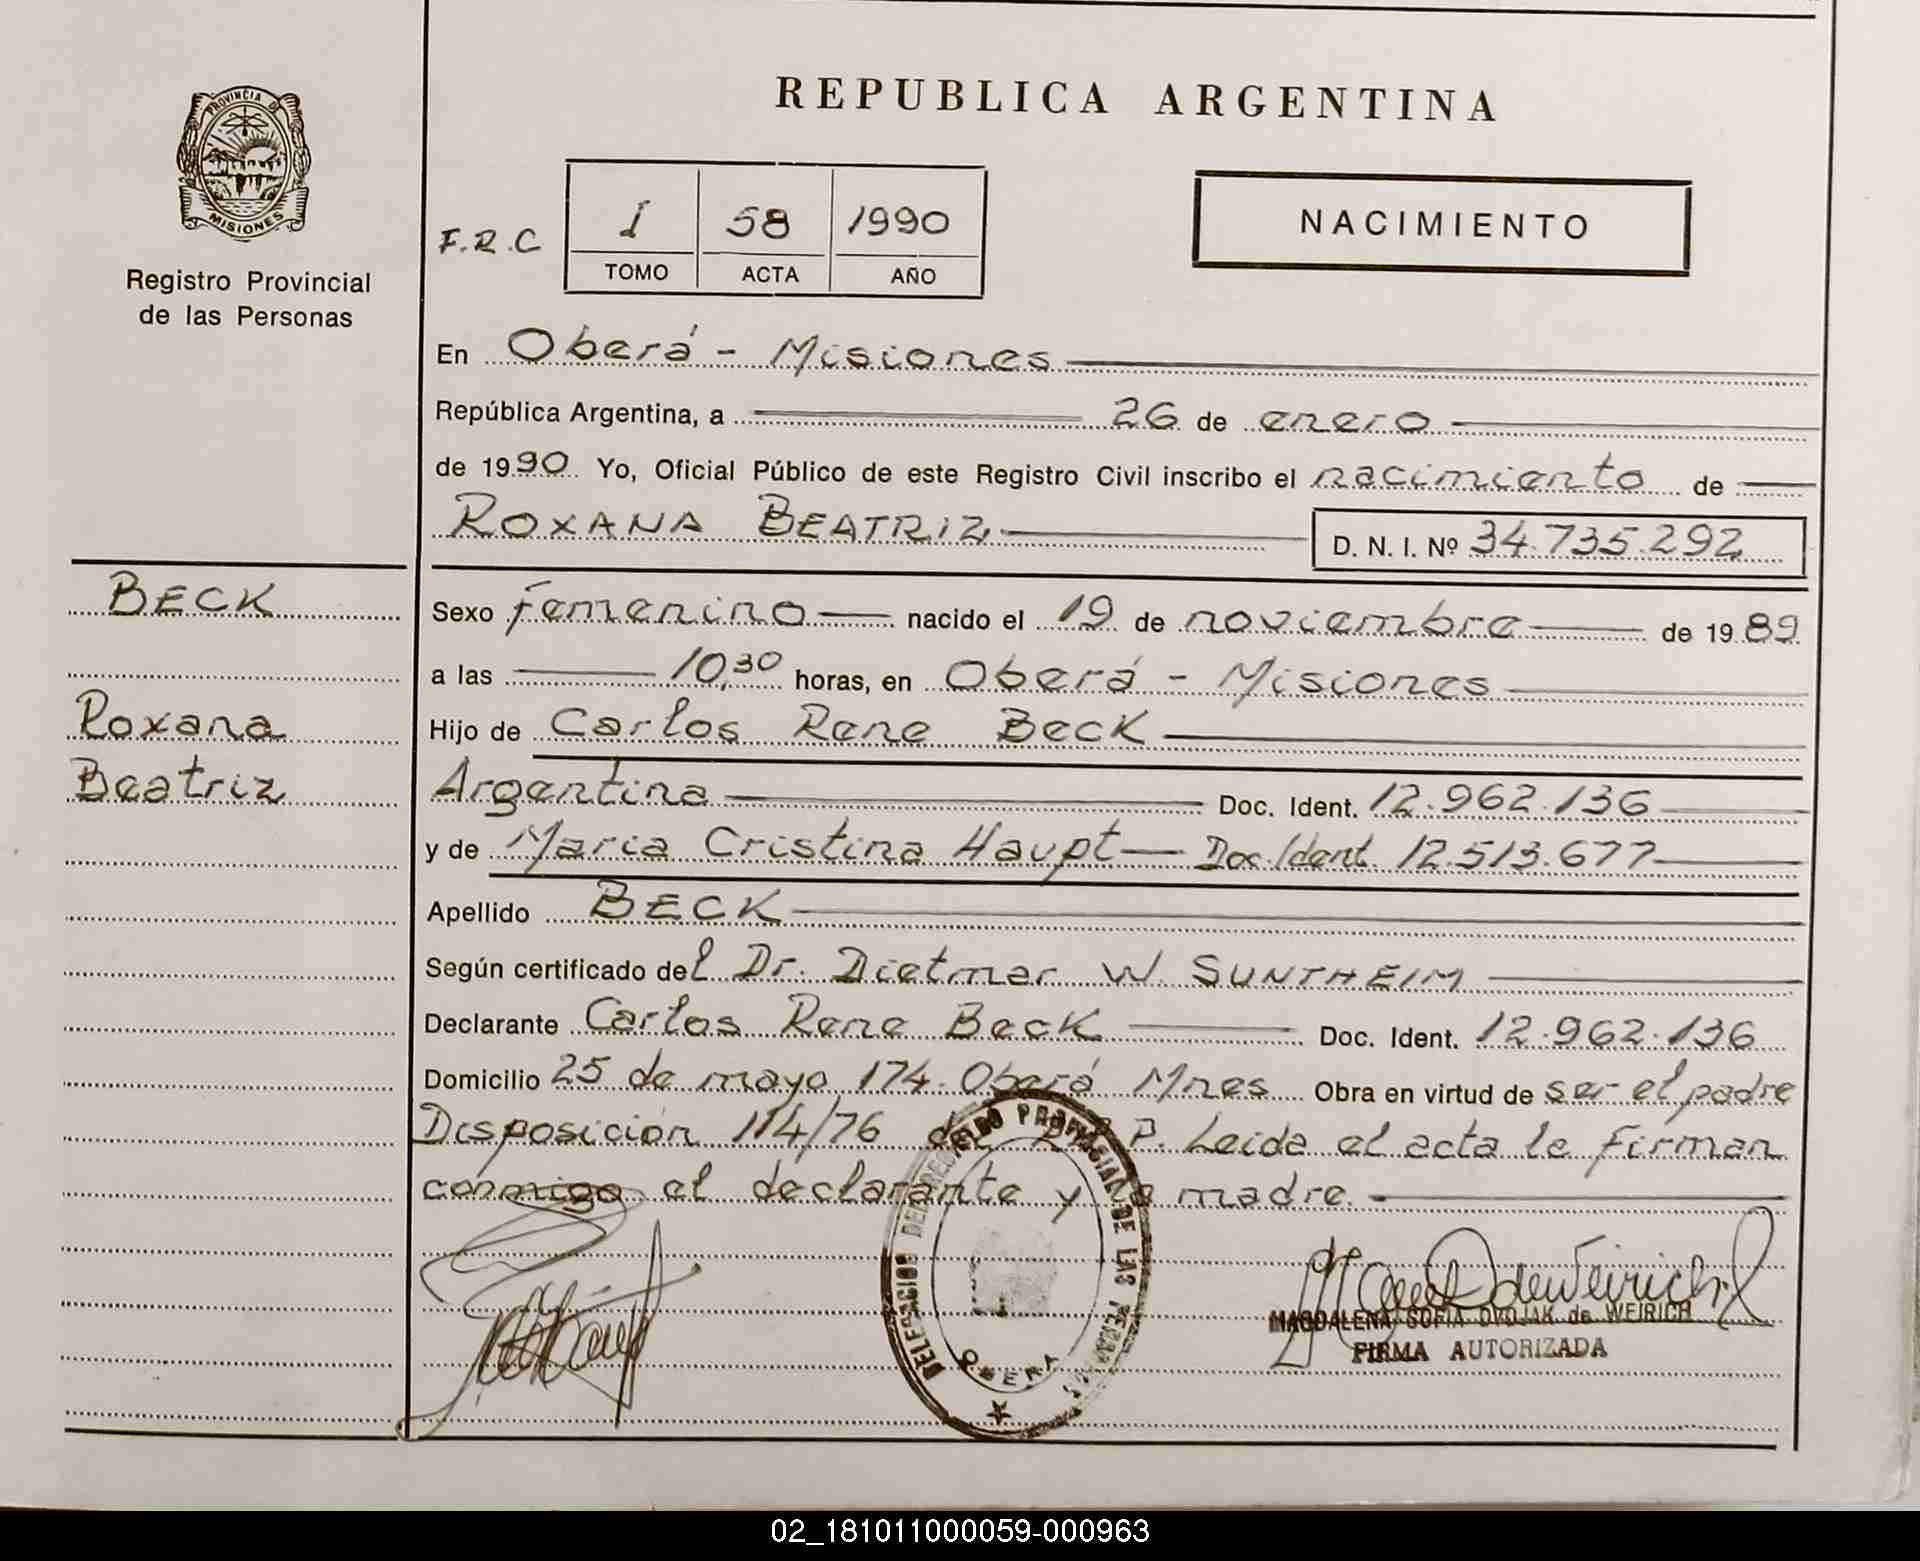 PROVINCIA DE
MISIONES
Registro Provincial
de las Personas
BECK
Roxana
Beatriz
REPUBLICA ARGENTINA
F.R.C
I 58 1990
TOMO ACTA AÑO
NACIMIENTO
En Oberá - Misiones
República Argentina, a 26 de enero
de 1990 Yo, Oficial Público de este Registro Civil inscribo el nacimiento de
ROXANA BEATRIZ D. N. I. Nº 34.735.292
Sexo femenino nacido el 19 de noviembre de 1989
a las 10,30 horas, en Oberá - Misiones
Hijo de Carlos Rene Beck
Argentina Doc. Ident. 12.962.136
y de Maria Cristina Haupt Doc. Ident. 12.513.677
Apellido BECK
Según certificado del Dr. Dietmar W. SUNTHEIM
Declarante Carlos Rene Beck Doc. Ident. 12.962.136
Domicilio 25 de mayo 174. Oberá Mnes Obra en virtud de ser el padre
Disposición 114/76 P. Leida el acta le firman
conmigo el declarante y madre.
DELEGACION DEL REGISTRO PROVINCIAL DE LAS PERSONAS
OBERA
MAGDALENA SOFIA DVOJAK de WEIRICH
FIRMA AUTORIZADA
02_181011000059-000963